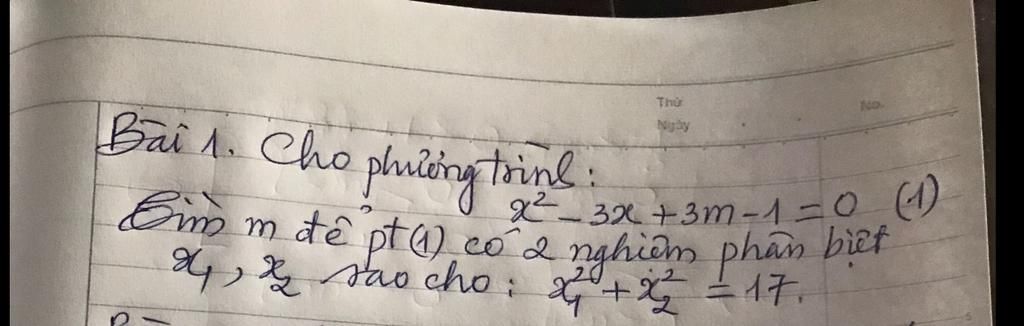 Thứ
No.
Ngày
Bài 1. Cho phương trình:
x² - 3x + 3m - 1 = 0 (1)
Tìm m để pt (1) có 2 nghiệm phân biệt
x₁, x₂ sao cho: x₁² + x₂² = 17.